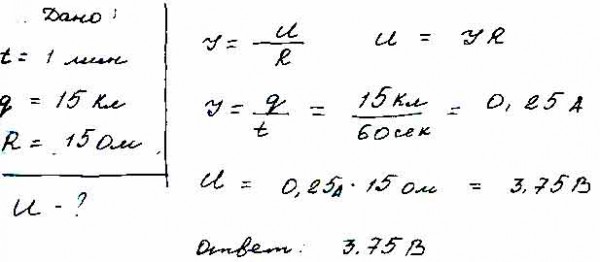 Дано:
t = 1 мин
q = 15 Кл
R = 15 Ом
U - ?
У = U / R    U = УR
У = q / t = 15 Кл / 60 сек = 0,25 А
U = 0,25А · 15 Ом = 3.75 В
Ответ: 3.75 В